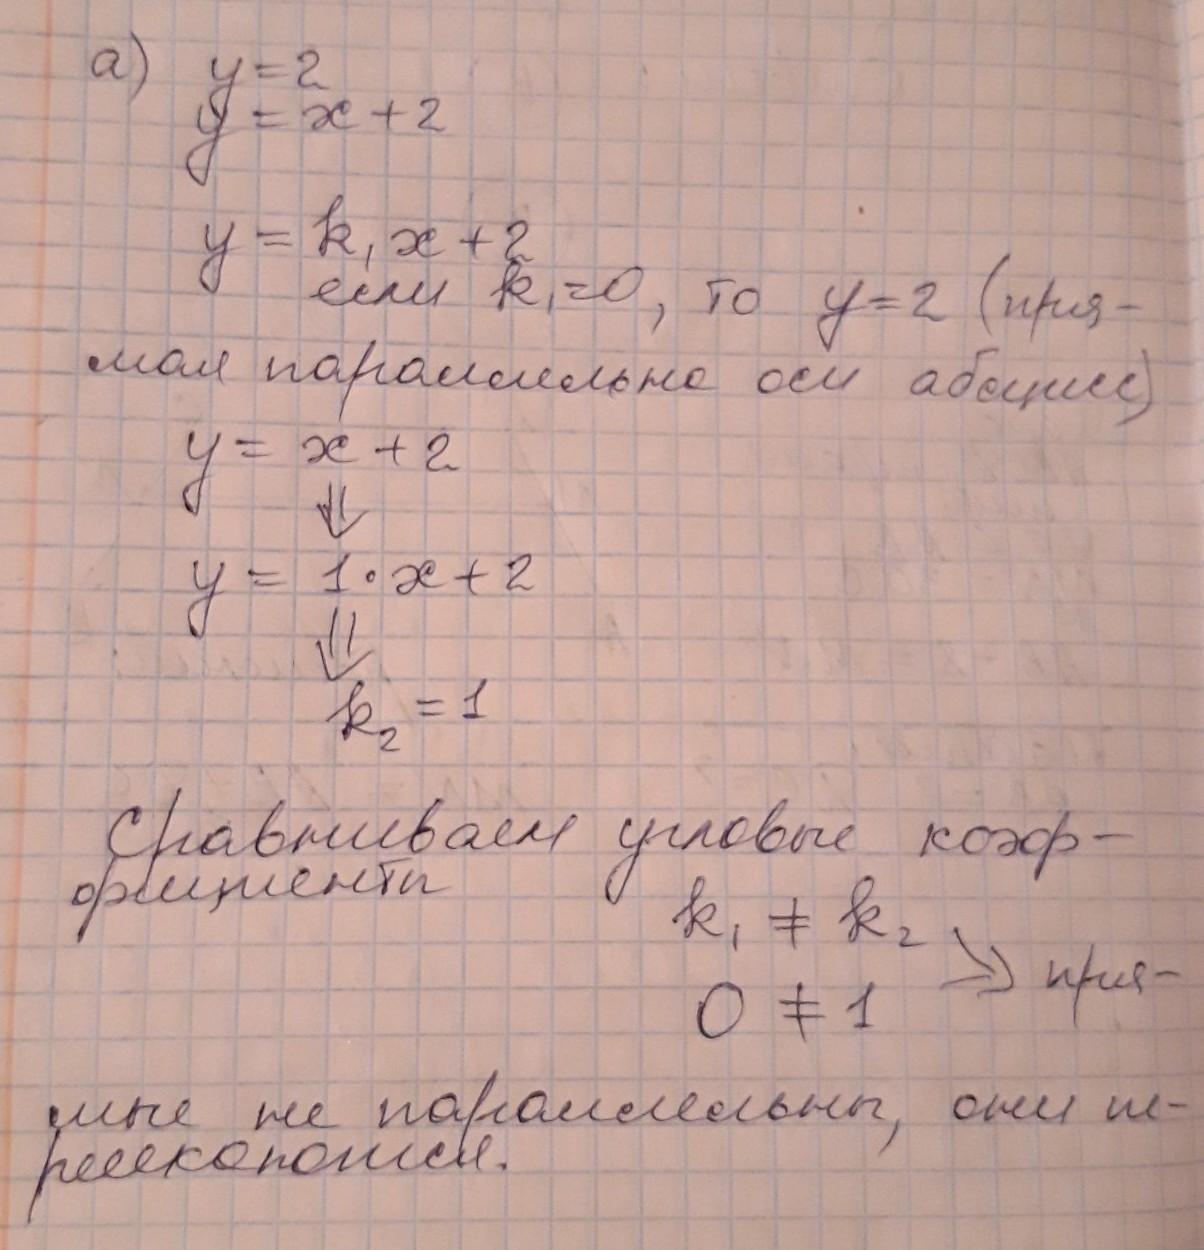 а) y = 2
y = x + 2
y = k₁x + 2
если k₁=0, то y=2 (пря-
мая параллельно оси абсцисс)
y = x + 2
⇓
y = 1·x + 2
⇓
k₂ = 1
Сравниваем угловые коэф-
фициенты
k₁ ≠ k₂
0 ≠ 1 ⇒ пря-
мые не параллельны, они пе-
ресекаются.